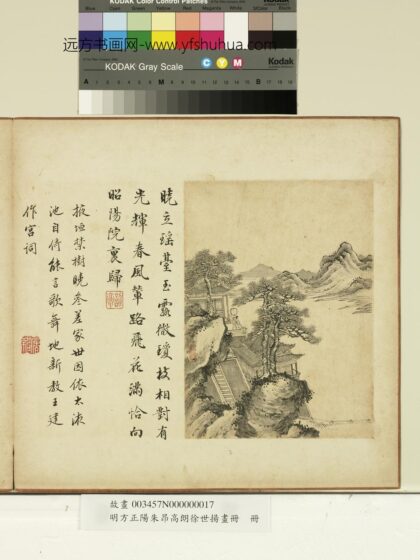 KODAK Color Control Patches
Kodak
Blue Cyan Green Yellow Red Magenta White 3/Color Black
远方书画网-www.yfshuhua.com
KODAK Gray Scale
C Y M
Kodak
A 1 2 3 4 5 6 M 8 9 10 11 12 13 14 15 B 17 18 19
曉立瑤臺玉露微瓊枝相對有
光輝春風輦路飛花滿恰向
昭陽院裏歸
掖垣禁樹曉參差家世因依太液
池自倚能言歌舞地新教王建
作宮詞
故畫 003457N000000017
明方正陽朱昂高朗徐世揚畫冊 冊